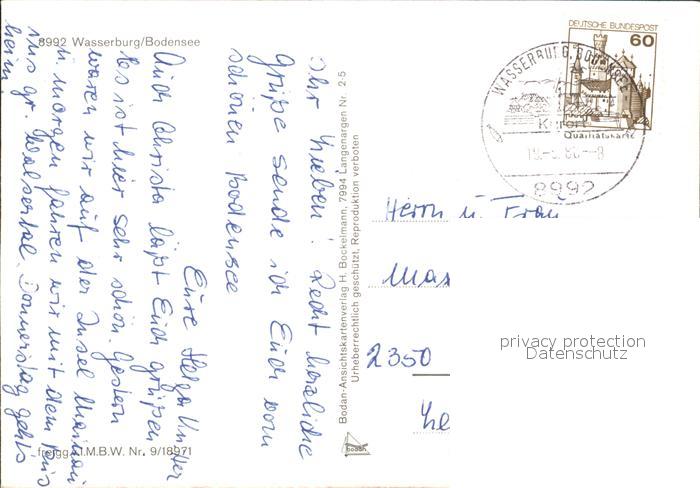 8992 Wasserburg/Bodensee
Ihr Lieben! Recht herzliche
Grüße sende ich Euch vom
schönen Bodensee
Eure Helga
Auch Christa läßt Euch grüßen
Es ist hier sehr schön. Gestern
waren wir auf der Insel Mainau
u. morgen fahren wir mit dem Bus
ins gr. Walsertal. Donnerstag geht's
heim.
freigg. I.M.B.W. Nr. 9/18971
Bodan-Ansichtskartenverlag H. Bockelmann, 7994 Langenargen Nr. 2-5
Urheberrechtlich geschützt, Reproduktion verboten
bodan
DEUTSCHE BUNDESPOST
60
WASSERBURG, BODENSEE
Kurort
Qualitätskarte
8992
Herrn u. Frau
Max
2350
privacy protection
Datenschutz